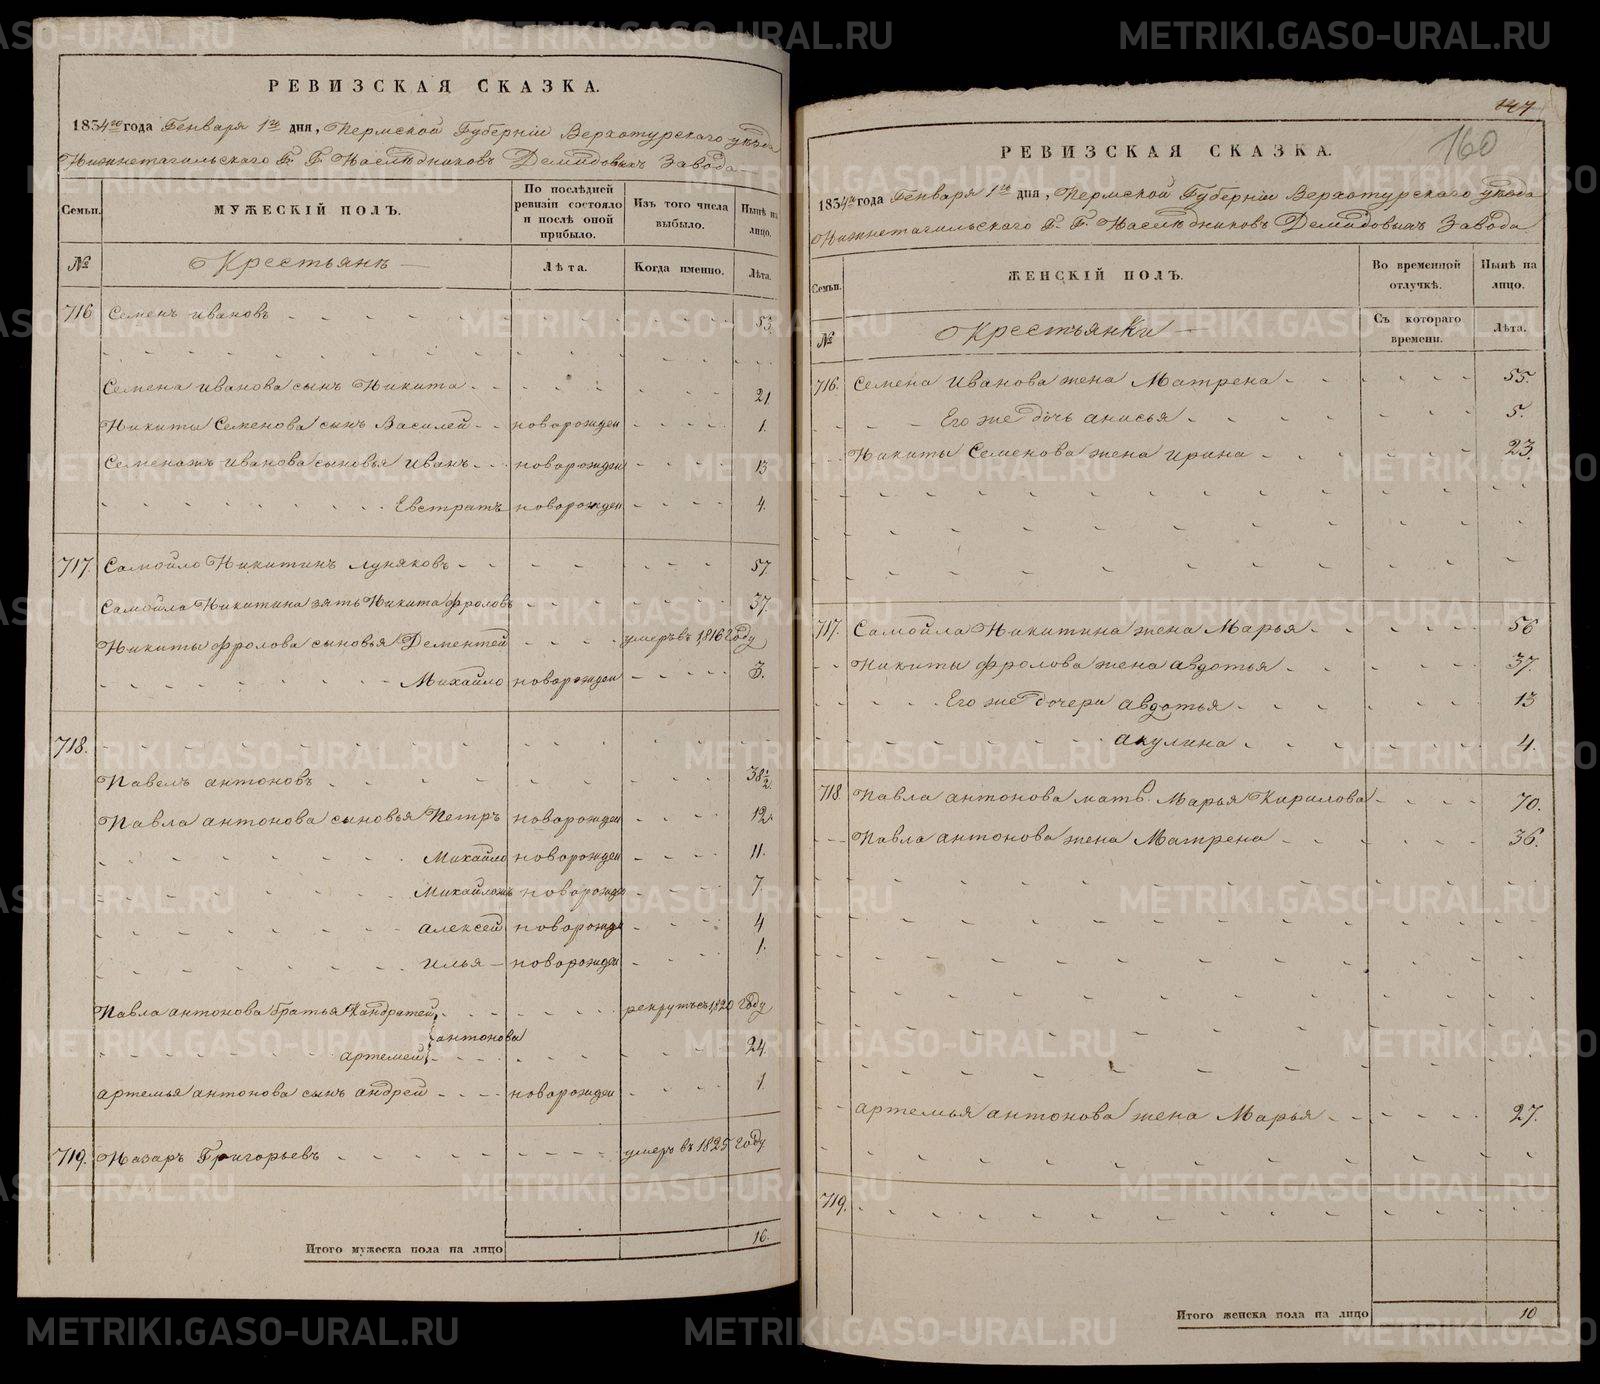 РЕВИЗСКАЯ СКАЗКА.
1834го года Генваря 1го дня, Пермской Губерніи Верхотурскаго уѣзда
Нижнетагильскаго Г. Г. Наслѣдниковъ Демидовыхъ Завода
Семьи.
МУЖЕСКІЙ ПОЛЪ.
По послѣдней ревизіи состояло и послѣ оной прибыло.
Изъ того числа выбыло.
Нынѣ на лицо.
№
Крестьянѣ
Лѣта.
Когда именно.
Лѣта.
716 Семенъ Ивановъ 53.
Семена Иванова сынъ Никита 21
Никиты Семенова сынъ Василей новорожден 1.
Семеновъ Иванова сыновья Иванъ новорожден 13
Евстратъ новорожден 4.
717. Самойло Никитинъ Луняковъ 57
Самойла Никитина зять Никита Фроловъ 37.
Никиты Фролова сыновья Дементей умеръ въ 1816 году
Михайло новорожден 3.
718.
Павелъ Антоновъ 38 1/2.
Павла Антонова сыновья Петръ новорожден 12
Михайло новорожден 11.
новорожден 7
Алексей новорожде 4
Илья новорожден 1.
Павла Антонова братья Кандратей рекрутъ съ 1820 году
Антонова
Артемей 24.
Артемья Антонова сынъ Андрей новорожден 1
719. Назаръ Григорьевъ умеръ въ 1825 году
Итого мужеска пола на лицо 16.
147
160
РЕВИЗСКАЯ СКАЗКА.
1834го года Генваря 1го дня, Пермской Губерніи Верхотурскаго уѣзда
Нижнетагильскаго Г. Г. Наслѣдниковъ Демидовыхъ Завода
Семьи.
ЖЕНСКІЙ ПОЛЪ.
Во временной отлучкѣ.
Нынѣ на лицо.
№
Крестьянки
Съ котораго времени.
Лѣта.
716. Семена Иванова жена Матрена 55.
Его же дочь Анисья 5.
Никиты Семенова жена Ирина 23.
717. Самойла Никитина жена Марья 56
Никиты Фролова жена Авдотья 37.
Его же дочери Авдотья 13
Акулина 4.
718 Павла Антонова мать Марья Кирилова 70.
Павла Антонова жена Матрена 36.
Артемья Антонова жена Марья 27.
719.
Итого женска пола на лицо 10
METRIKI.GASO-URAL.RU